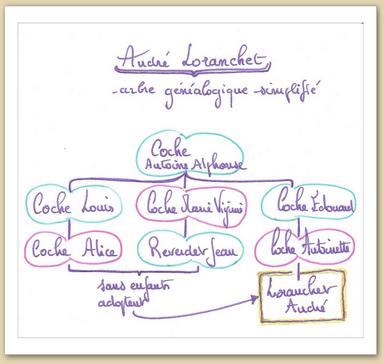 André Loranchet
arbre généalogique simplifié
Coche
Antoine Alphonse
Coche Louis
Coche Marie
Coche Édouard
Coche Alice
Reverder Jean
Coche Antoinette
sans enfants
adoptent
Loranchet
André